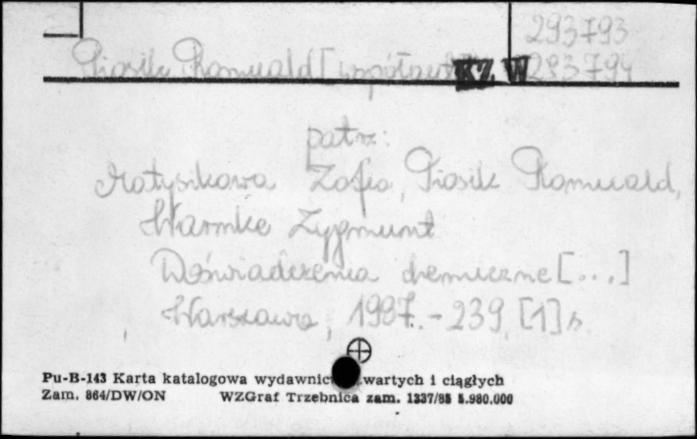 293793
Piosik Romuald [współaut
KZ W 293794
patrz:
Matysikowa Zofia, Piosik Romuald,
Warnke Zygmunt
Doświadczenia chemiczne [...]
Warszawa, 1987. - 239, [1] s.
Pu-B-143 Karta katalogowa wydawnic wartych i ciągłych
Zam. 864/DW/ON WZGraf Trzebnica zam. 1337/85 5.980.000